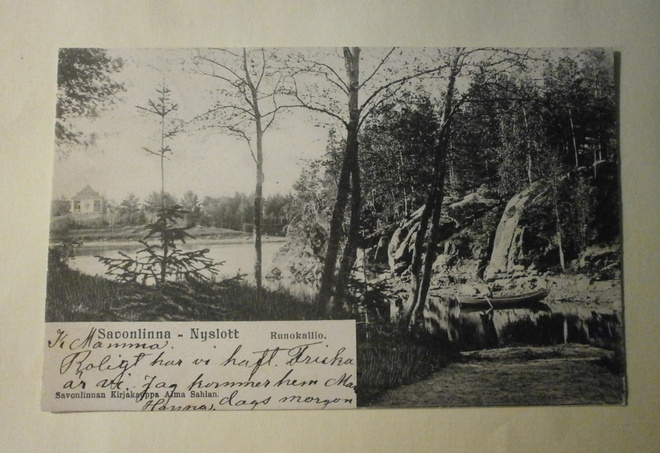 Savonlinna - Nyslott
Runokallio.
K. Mamma.
Roligt har vi haft. Friska
är vi. Jag kommer hem Mån
Savonlinnan Kirjakauppa Alma Sahlan.
dags morgon
Hanna,